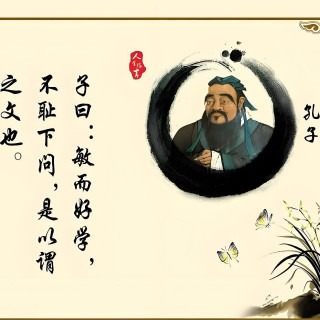 孔子
子曰：敏而好学，
不耻下问，是以谓
之文也。